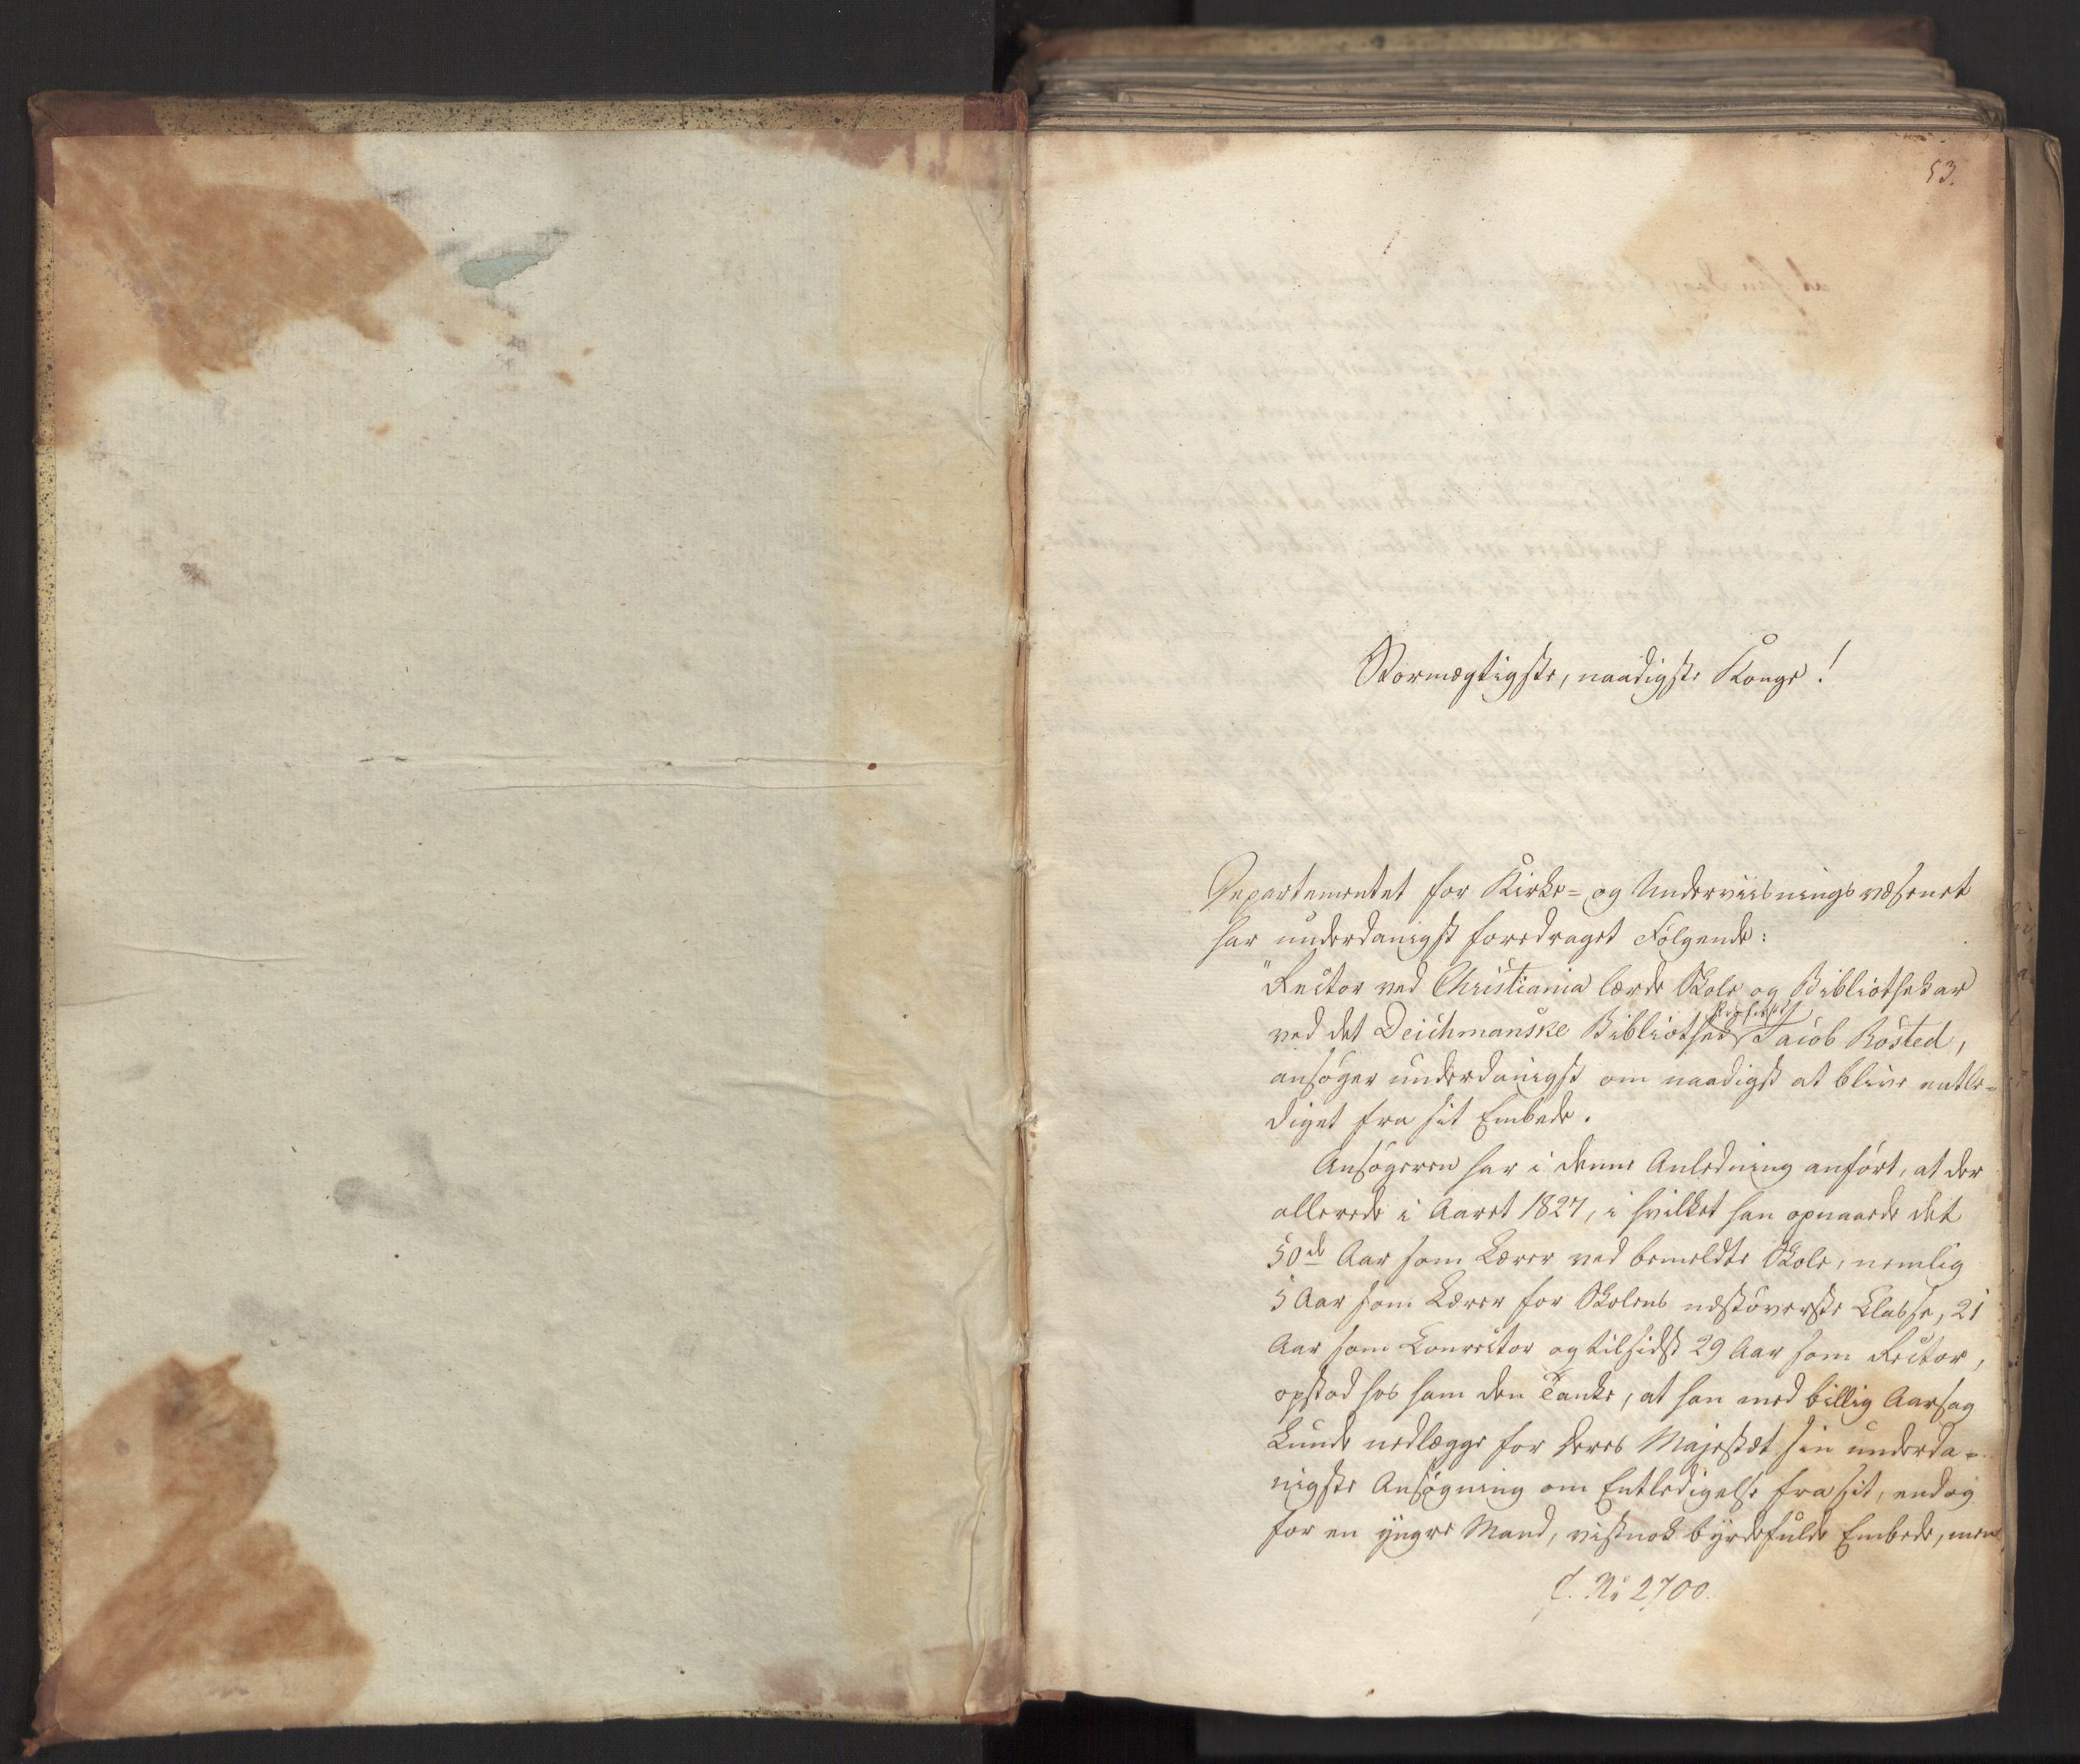 53.
Stormægtigste, naadigste Konge!
Departementet for Kirke- og Underviisningsvæsenet
har underdanigst foredraget Følgende:
"Rector ved Christiania lærde Skole og Bibliothekar
ved det Deichmanske Bibliothek, Professor Jacob Rosted,
ansøger underdanigst om naadigst at blive entle-
diget fra sit Embede.
Ansøgeren har i denne Anledning anført, at der
allerede i Aaret 1827, i hvilket han opnaaede det
50de Aar som Lærer ved bemeldte Skole, nemlig
5 Aar som Lærer for Skolens næstøverste Classe, 21
Aar som Conrector og tilsidst 29 Aar som Rector,
opstod hos ham den Tanke, at han med billig Aarsag
kunde nedlægge for Deres Majestæt sin underda-
nigste Ansøgning om Entledigelse fra sit, endog
for en yngre Mand, vistnok byrdefulde Embede, men
C. No 2700.